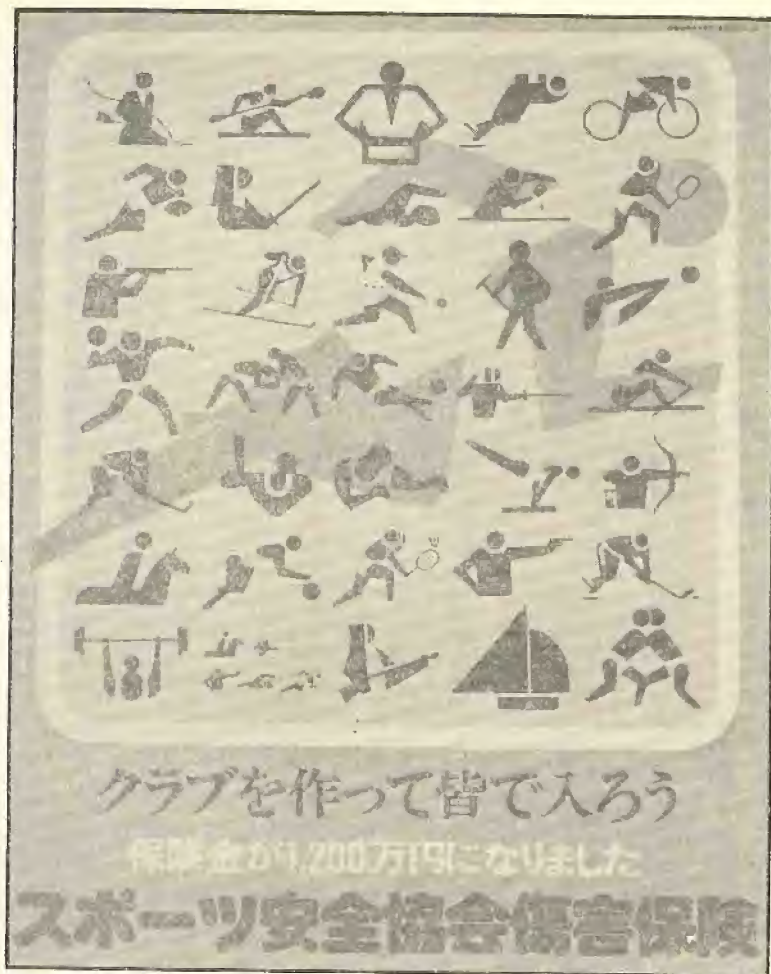 クラブを作って皆で入ろう
保険金が1,200万円になりました
スポーツ安全協会傷害保険